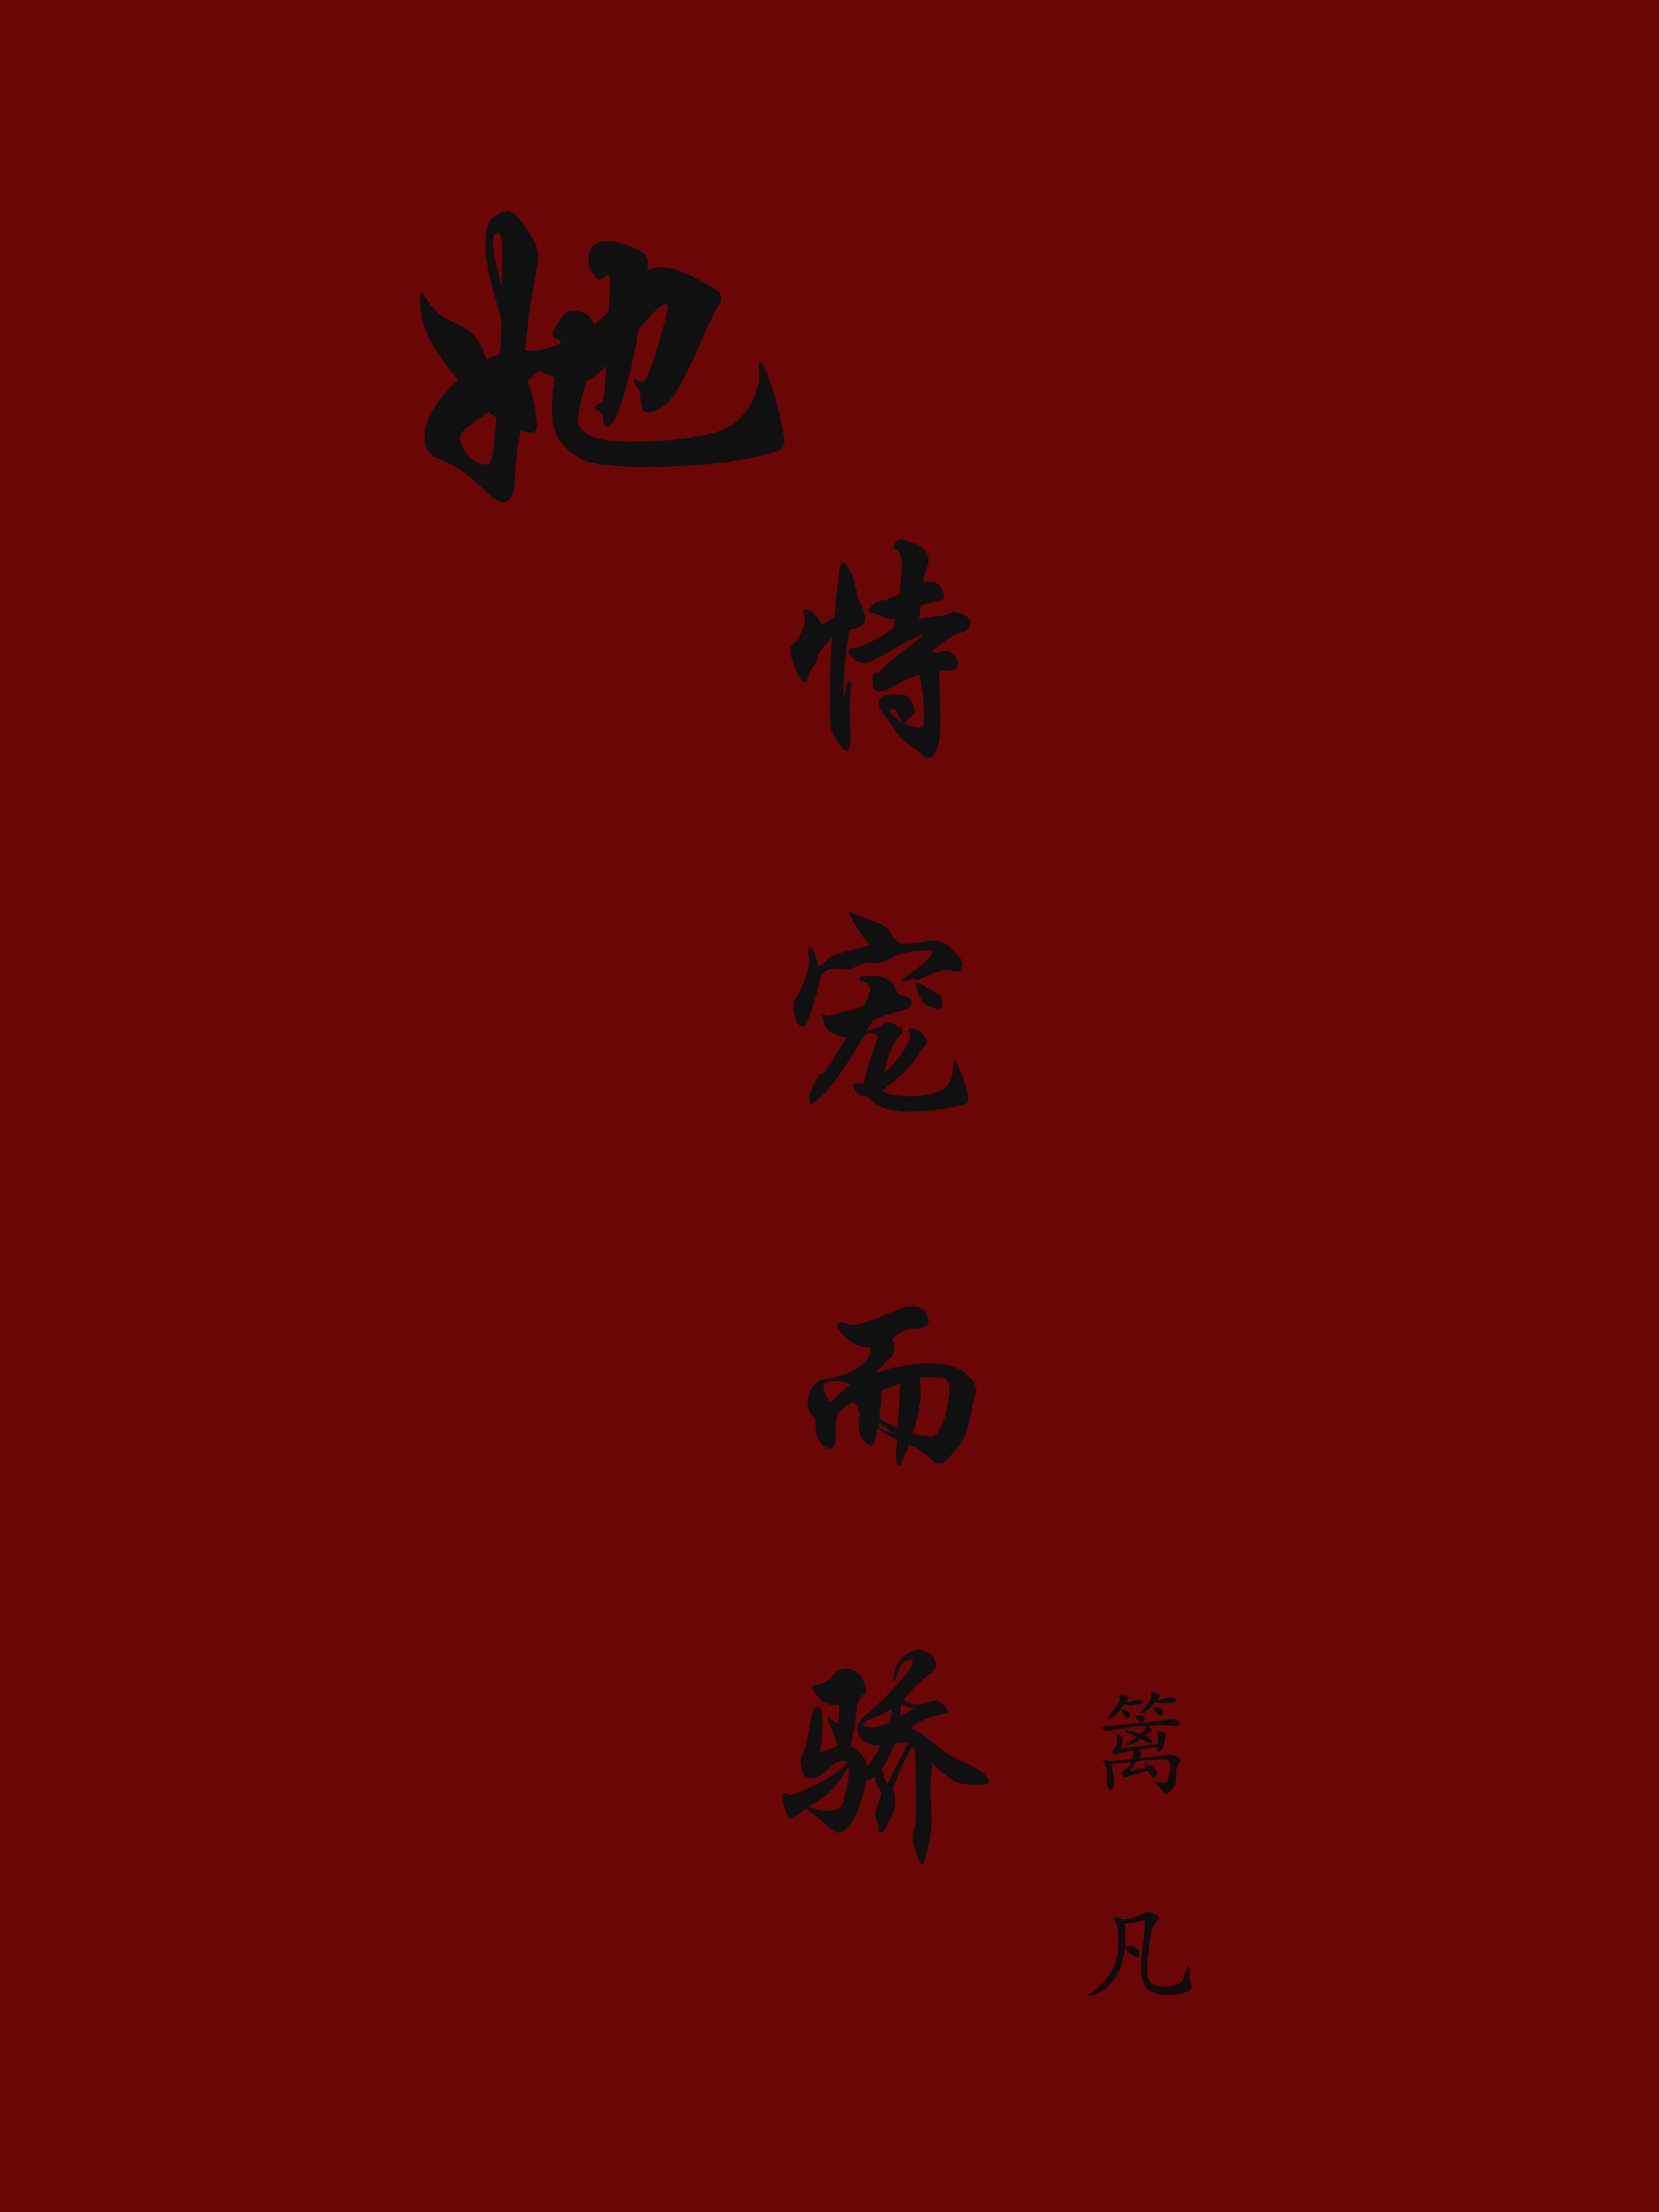 她
恃
宠
而
骄
篱
凡